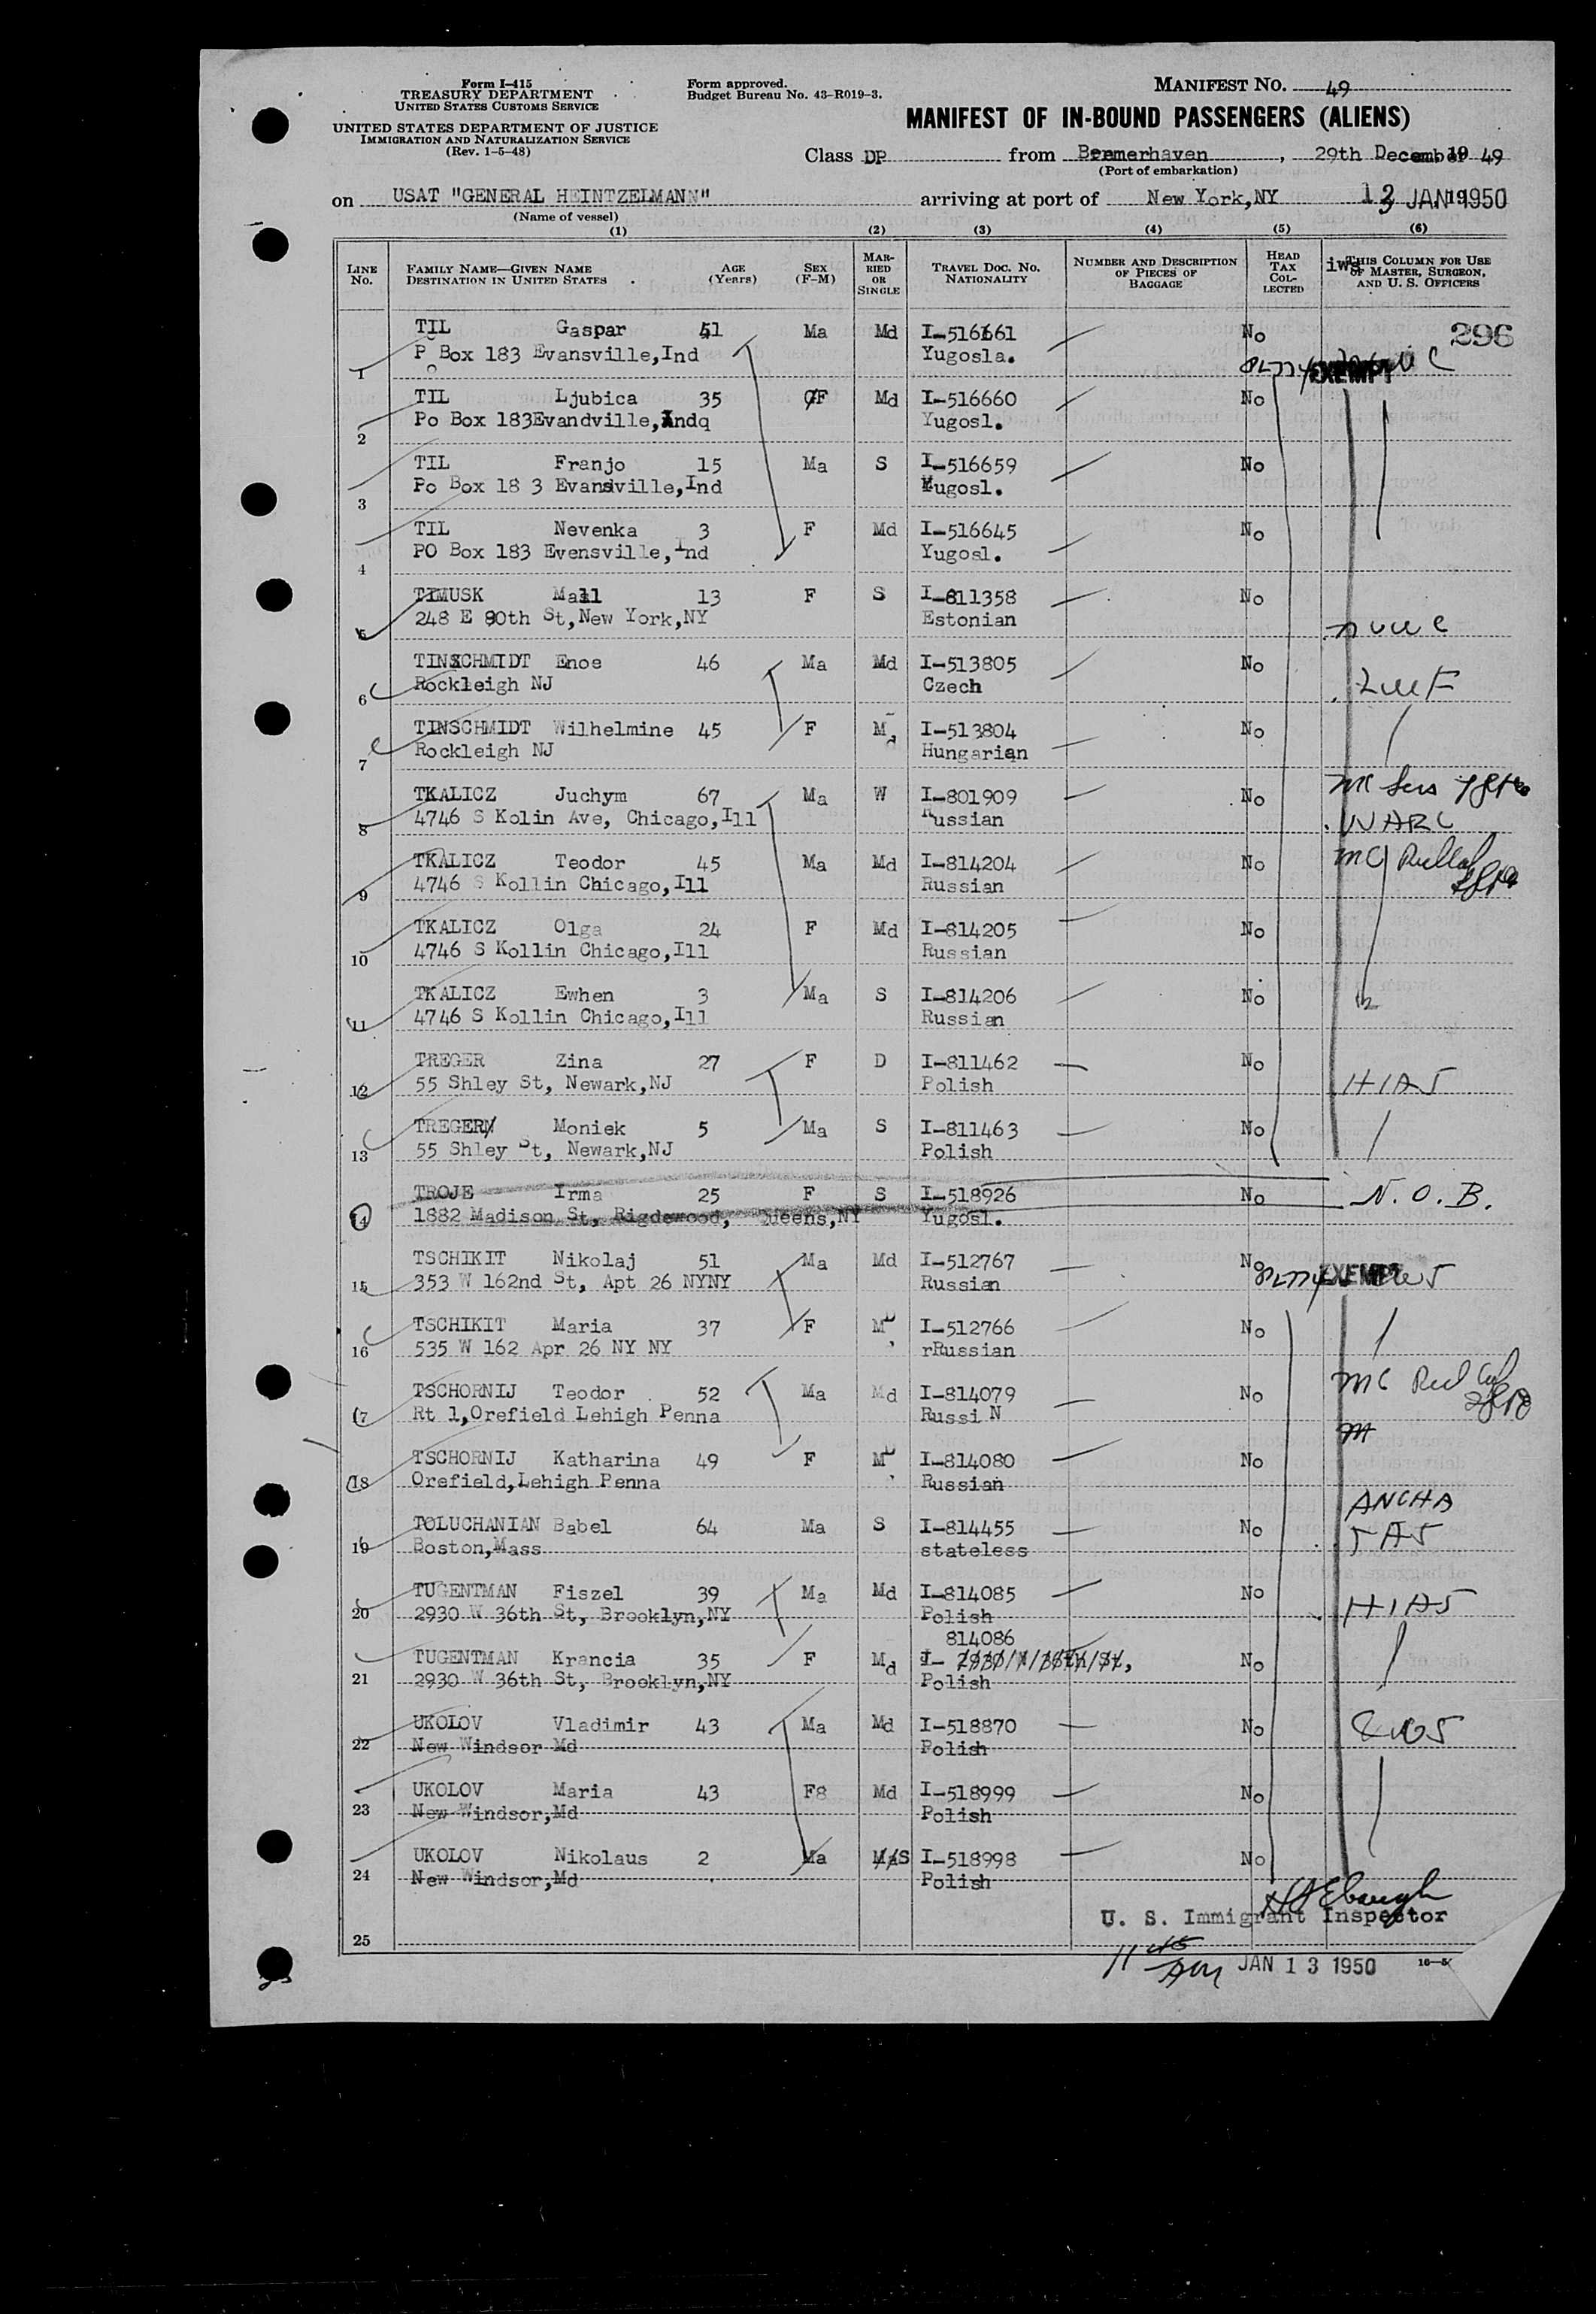 Form I-415
TREASURY DEPARTMENT
UNITED STATES CUSTOMS SERVICE
UNITED STATES DEPARTMENT OF JUSTICE
IMMIGRATION AND NATURALIZATION SERVICE
(Rev. 1-5-48)
Form approved.
Budget Bureau No. 43-R019-3.
MANIFEST NO. 49
MANIFEST OF IN-BOUND PASSENGERS (ALIENS)
Class DP from Bremerhaven, 29th December 19 49
(Port of embarkation)
on USAT "GENERAL HEINTZELMANN" arriving at port of New York,NY 13 JAN 1950
(Name of vessel)
(1) (2) (3) (4) (5) (6)
LINE No. FAMILY NAME—GIVEN NAME DESTINATION IN UNITED STATES AGE (Years) SEX (F-M) MARRIED OR SINGLE TRAVEL DOC. NO. NATIONALITY NUMBER AND DESCRIPTION OF PIECES OF BAGGAGE HEAD TAX COLLECTED THIS COLUMN FOR USE OF MASTER, SURGEON, AND U. S. OFFICERS
iws
296
TIL Gaspar 51 Ma Md I-516661 No
1 PO Box 183 Evansville,Ind Yugosla. EXEMPT
TIL Ljubica 35 F Md I-516660 No
2 Po Box 183Evandville,Indq Yugosl.
TIL Franjo 15 Ma S I-516659 No
3 Po Box 18 3 Evansville,Ind Yugosl.
TIL Nevenka 3 F Md I-516645 No
4 PO Box 183 Evensville,Ind Yugosl.
TIMUSK Mall 13 F S I-811358 No
5 248 E 80th St,New York,NY Estonian
TINSCHMIDT Enoe 46 Ma Md I-513805 No
6 Rockleigh NJ Czech
TINSCHMIDT Wilhelmine 45 F M I-513804 No
7 Rockleigh NJ Hungarian
TKALICZ Juchym 67 Ma W I-801909 No
8 4746 S Kolin Ave, Chicago,Ill Russian WARC
TKALICZ Teodor 45 Ma Md I-814204 No
9 4746 S Kollin Chicago,Ill Russian
TKALICZ Olga 24 F Md I-814205 No
10 4746 S Kollin Chicago,Ill Russian
TKALICZ Ewhen 3 Ma S I-814206 No
11 4746 S Kollin Chicago,Ill Russian
TREGER Zina 27 F D I-811462 No
12 55 Shley St, Newark,NJ Polish HIAS
TREGER Moniek 5 Ma S I-811463 No
13 55 Shley St, Newark,NJ Polish
TROJE Irma 25 F S I-518926 No N.O.B.
14 1882 Madison St, Rigdewood, Queens,NY Yugosl.
TSCHIKIT Nikolaj 51 Ma Md I-512767 No
15 353 W 162nd St, Apt 26 NYNY Russian EXEMPT
TSCHIKIT Maria 37 F MD I-512766 No
16 535 W 162 Apr 26 NY NY rRussian
TSCHORNIJ Teodor 52 Ma Md I-814079 No
17 Rt 1,Orefield Lehigh Penna Russi N
TSCHORNIJ Katharina 49 F MD I-814080 No
18 Orefield,Lehigh Penna Russian
ANCHA
TOLUCHANIAN Babel 64 Ma S I-814455 No
19 Boston,Mass stateless
TUGENTMAN Fiszel 39 Ma Md I-814085 No
20 2930 W 36th St, Brooklyn,NY Polish HIAS
814086
TUGENTMAN Krancia 35 F Md I- No
21 2930 W 36th St, Brooklyn,NY Polish
UKOLOV Vladimir 43 Ma Md I-518870 No
22 New Windsor Md Polish
UKOLOV Maria 43 F8 Md I-518999 No
23 New Windsor,Md Polish
UKOLOV Nikolaus 2 Ma S I-518998 No
24 New Windsor,Md Polish
U. S. Immigrant Inspector
25
11 45 AM JAN 13 1950